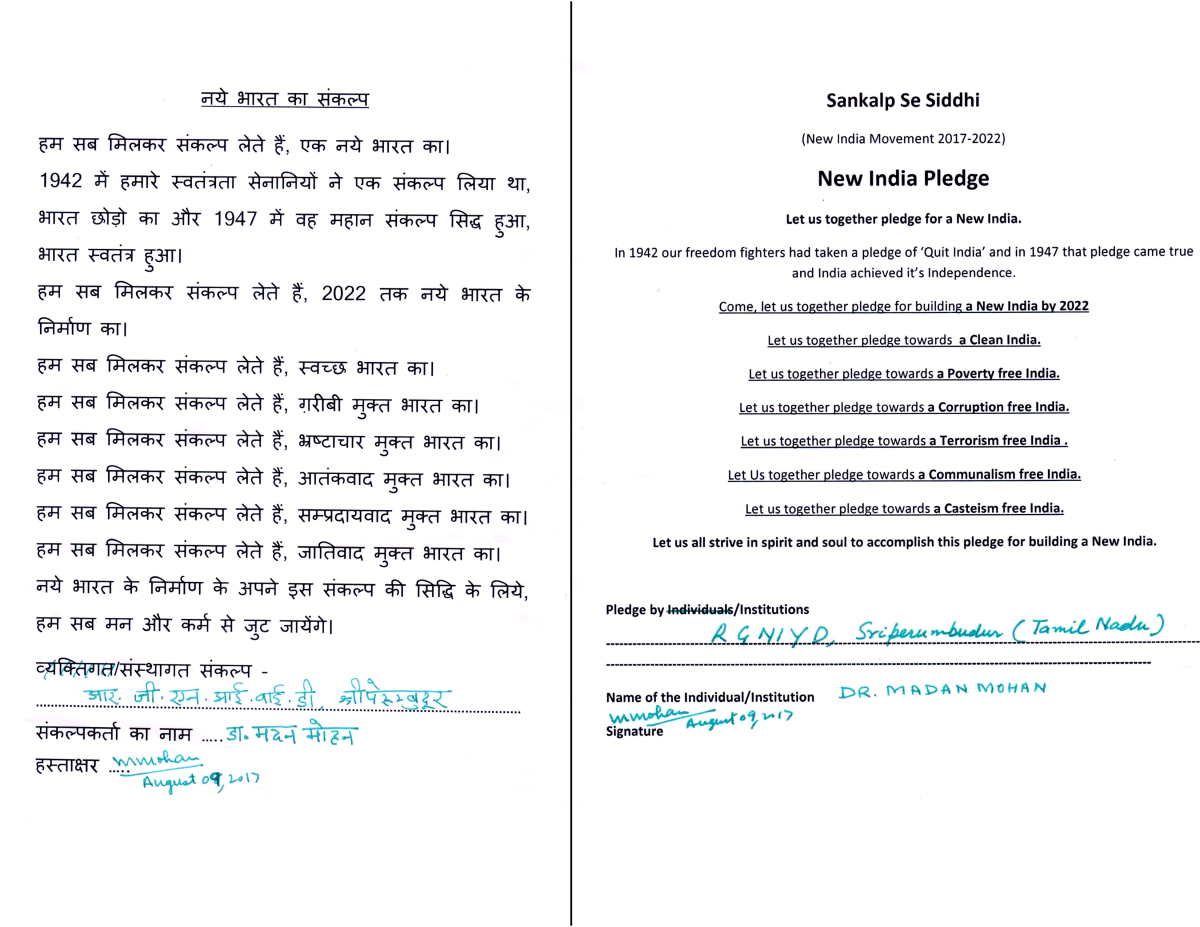 नये भारत का संकल्प
हम सब मिलकर संकल्प लेते हैं, एक नये भारत का।
1942 में हमारे स्वतंत्रता सेनानियों ने एक संकल्प लिया था,
भारत छोड़ो का और 1947 में वह महान संकल्प सिद्ध हुआ,
भारत स्वतंत्र हुआ।
हम सब मिलकर संकल्प लेते हैं, 2022 तक नये भारत के
निर्माण का।
हम सब मिलकर संकल्प लेते हैं, स्वच्छ भारत का।
हम सब मिलकर संकल्प लेते हैं, ग़रीबी मुक्त भारत का।
हम सब मिलकर संकल्प लेते हैं, भ्रष्टाचार मुक्त भारत का।
हम सब मिलकर संकल्प लेते हैं, आतंकवाद मुक्त भारत का।
हम सब मिलकर संकल्प लेते हैं, सम्प्रदायवाद मुक्त भारत का।
हम सब मिलकर संकल्प लेते हैं, जातिवाद मुक्त भारत का।
नये भारत के निर्माण के अपने इस संकल्प की सिद्धि के लिये,
हम सब मन और कर्म से जुट जायेंगे।
व्यक्तिगत/संस्थागत संकल्प -
आर. जी. एन. आई. वाई. डी, श्रीपेरुम्बुदूर
संकल्पकर्ता का नाम ..... डा. मदन मोहन
हस्ताक्षर ..... mmohan
August 09, 2017
Sankalp Se Siddhi
(New India Movement 2017-2022)
New India Pledge
Let us together pledge for a New India.
In 1942 our freedom fighters had taken a pledge of ‘Quit India’ and in 1947 that pledge came true
and India achieved it’s Independence.
Come, let us together pledge for building a New India by 2022
Let us together pledge towards a Clean India.
Let us together pledge towards a Poverty free India.
Let us together pledge towards a Corruption free India.
Let us together pledge towards a Terrorism free India .
Let Us together pledge towards a Communalism free India.
Let us together pledge towards a Casteism free India.
Let us all strive in spirit and soul to accomplish this pledge for building a New India.
Pledge by Individuals/Institutions
RGNIYD, Sriperumbudur (Tamil Nadu)
Name of the Individual/Institution DR. MADAN MOHAN
mmohan August 09, 2017
Signature